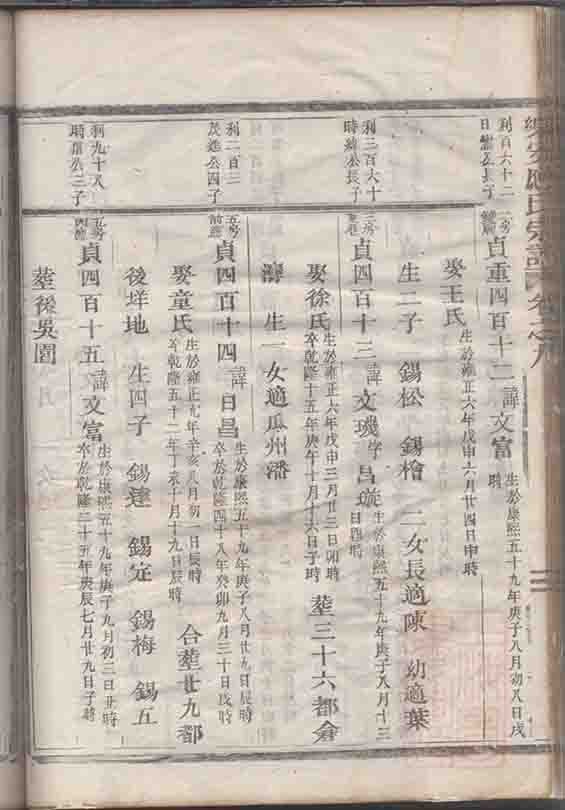 利百六十二
日 公長子
貞重四百十二 諱文富 生於康熙五十九年庚子八月初八日戌
時
娶王氏 生於雍正六年戊申六月廿四日申時
生二子 錫松 錫檜 二女長適陳 幼適葉
利三百六十
時 公長子
三房
貞四百十三 諱文璣字昌璇 生於康熙五十九年庚子八月十三
日酉時
娶徐氏 生於雍正六年戊申三月廿三日卯時
卒乾隆十五年庚午十月十六日子時
葬三十六都倉
生一女適瓜州潘
利二百三
茂進公四子
五房
前
貞四百十四 諱日昌 生於康熙五十九年庚子八月廿九日辰時
卒於乾隆四十八年癸卯九月三十日戌時
娶童氏 生於雍正九年辛亥八月初一日辰時
卒乾隆五十二年丁亥十月十九日辰時
合葬廿九都
後垟地 生四子 錫達 錫定 錫梅 錫五
利九十八
時 公三子
貞四百十五 諱文富 生於康熙五十九年庚子九月初三日丑時
卒於乾隆二十五年庚辰七月廿九日子時
葬後吳園